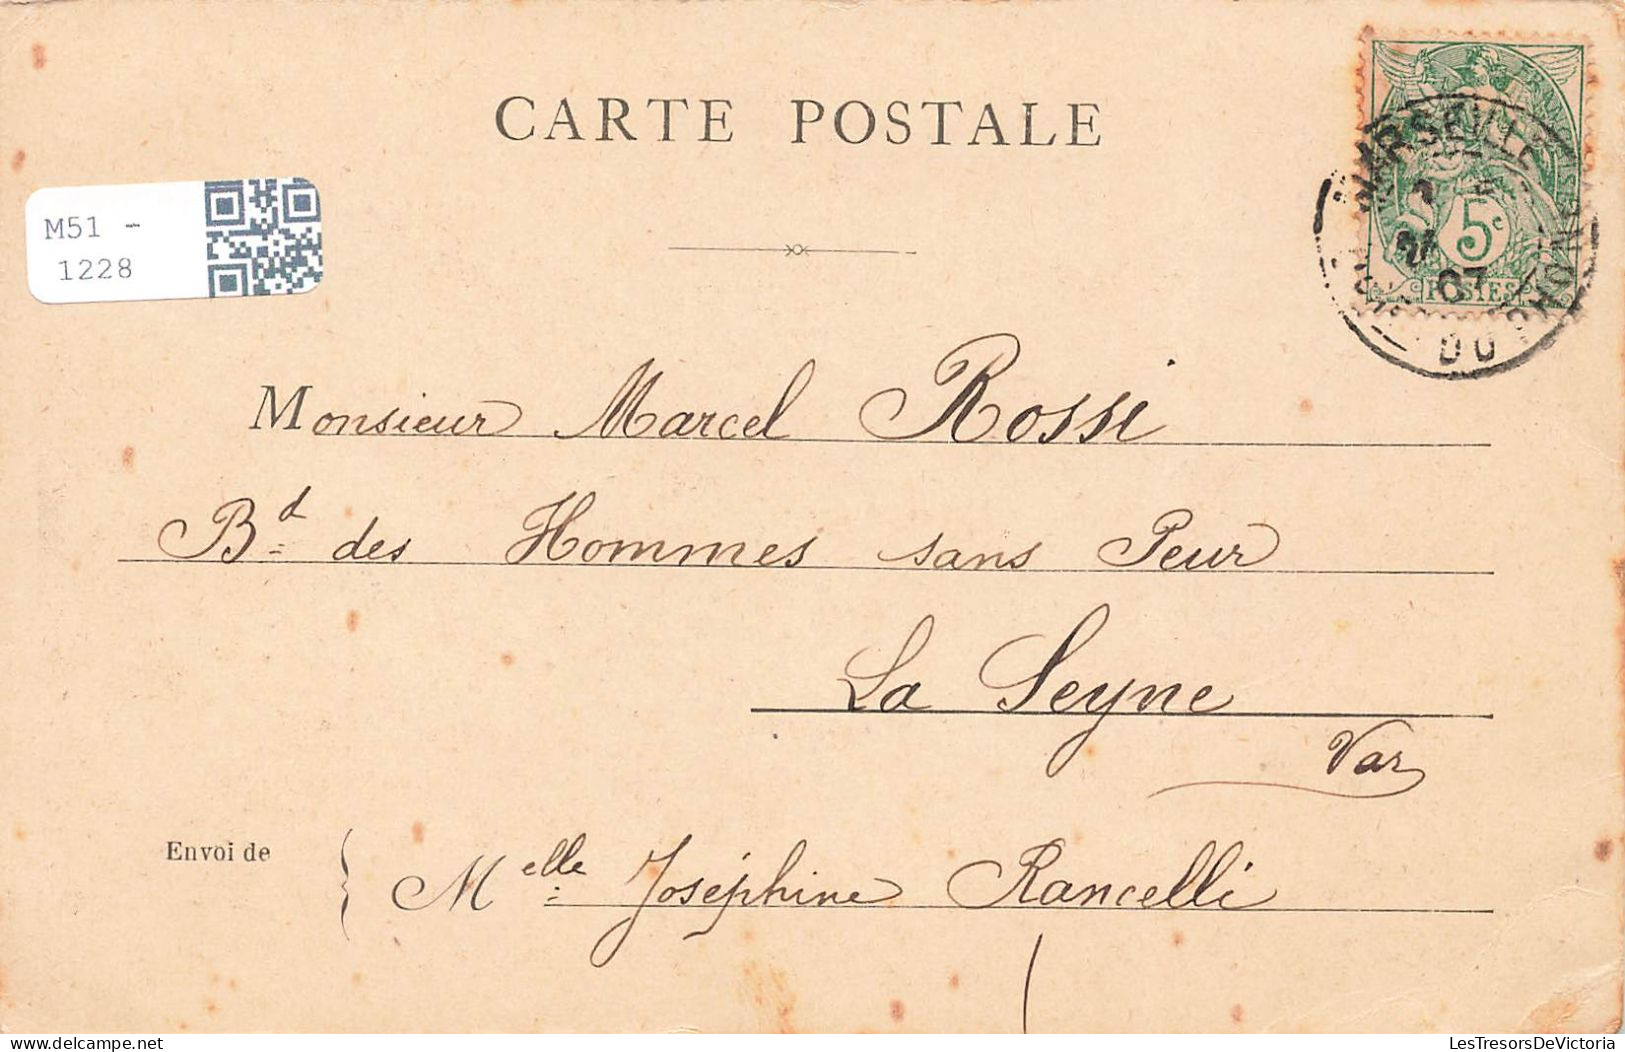 CARTE POSTALE
M51 -
1228
MARSEILLE
07
DU
5c
POSTES
Monsieur Marcel Rossi
Bd des Hommes sans Peur
La Seyne
Var
Envoi de
Melle Joséphine Rancelli
delcampe.net
LesTresorsDeVictoria